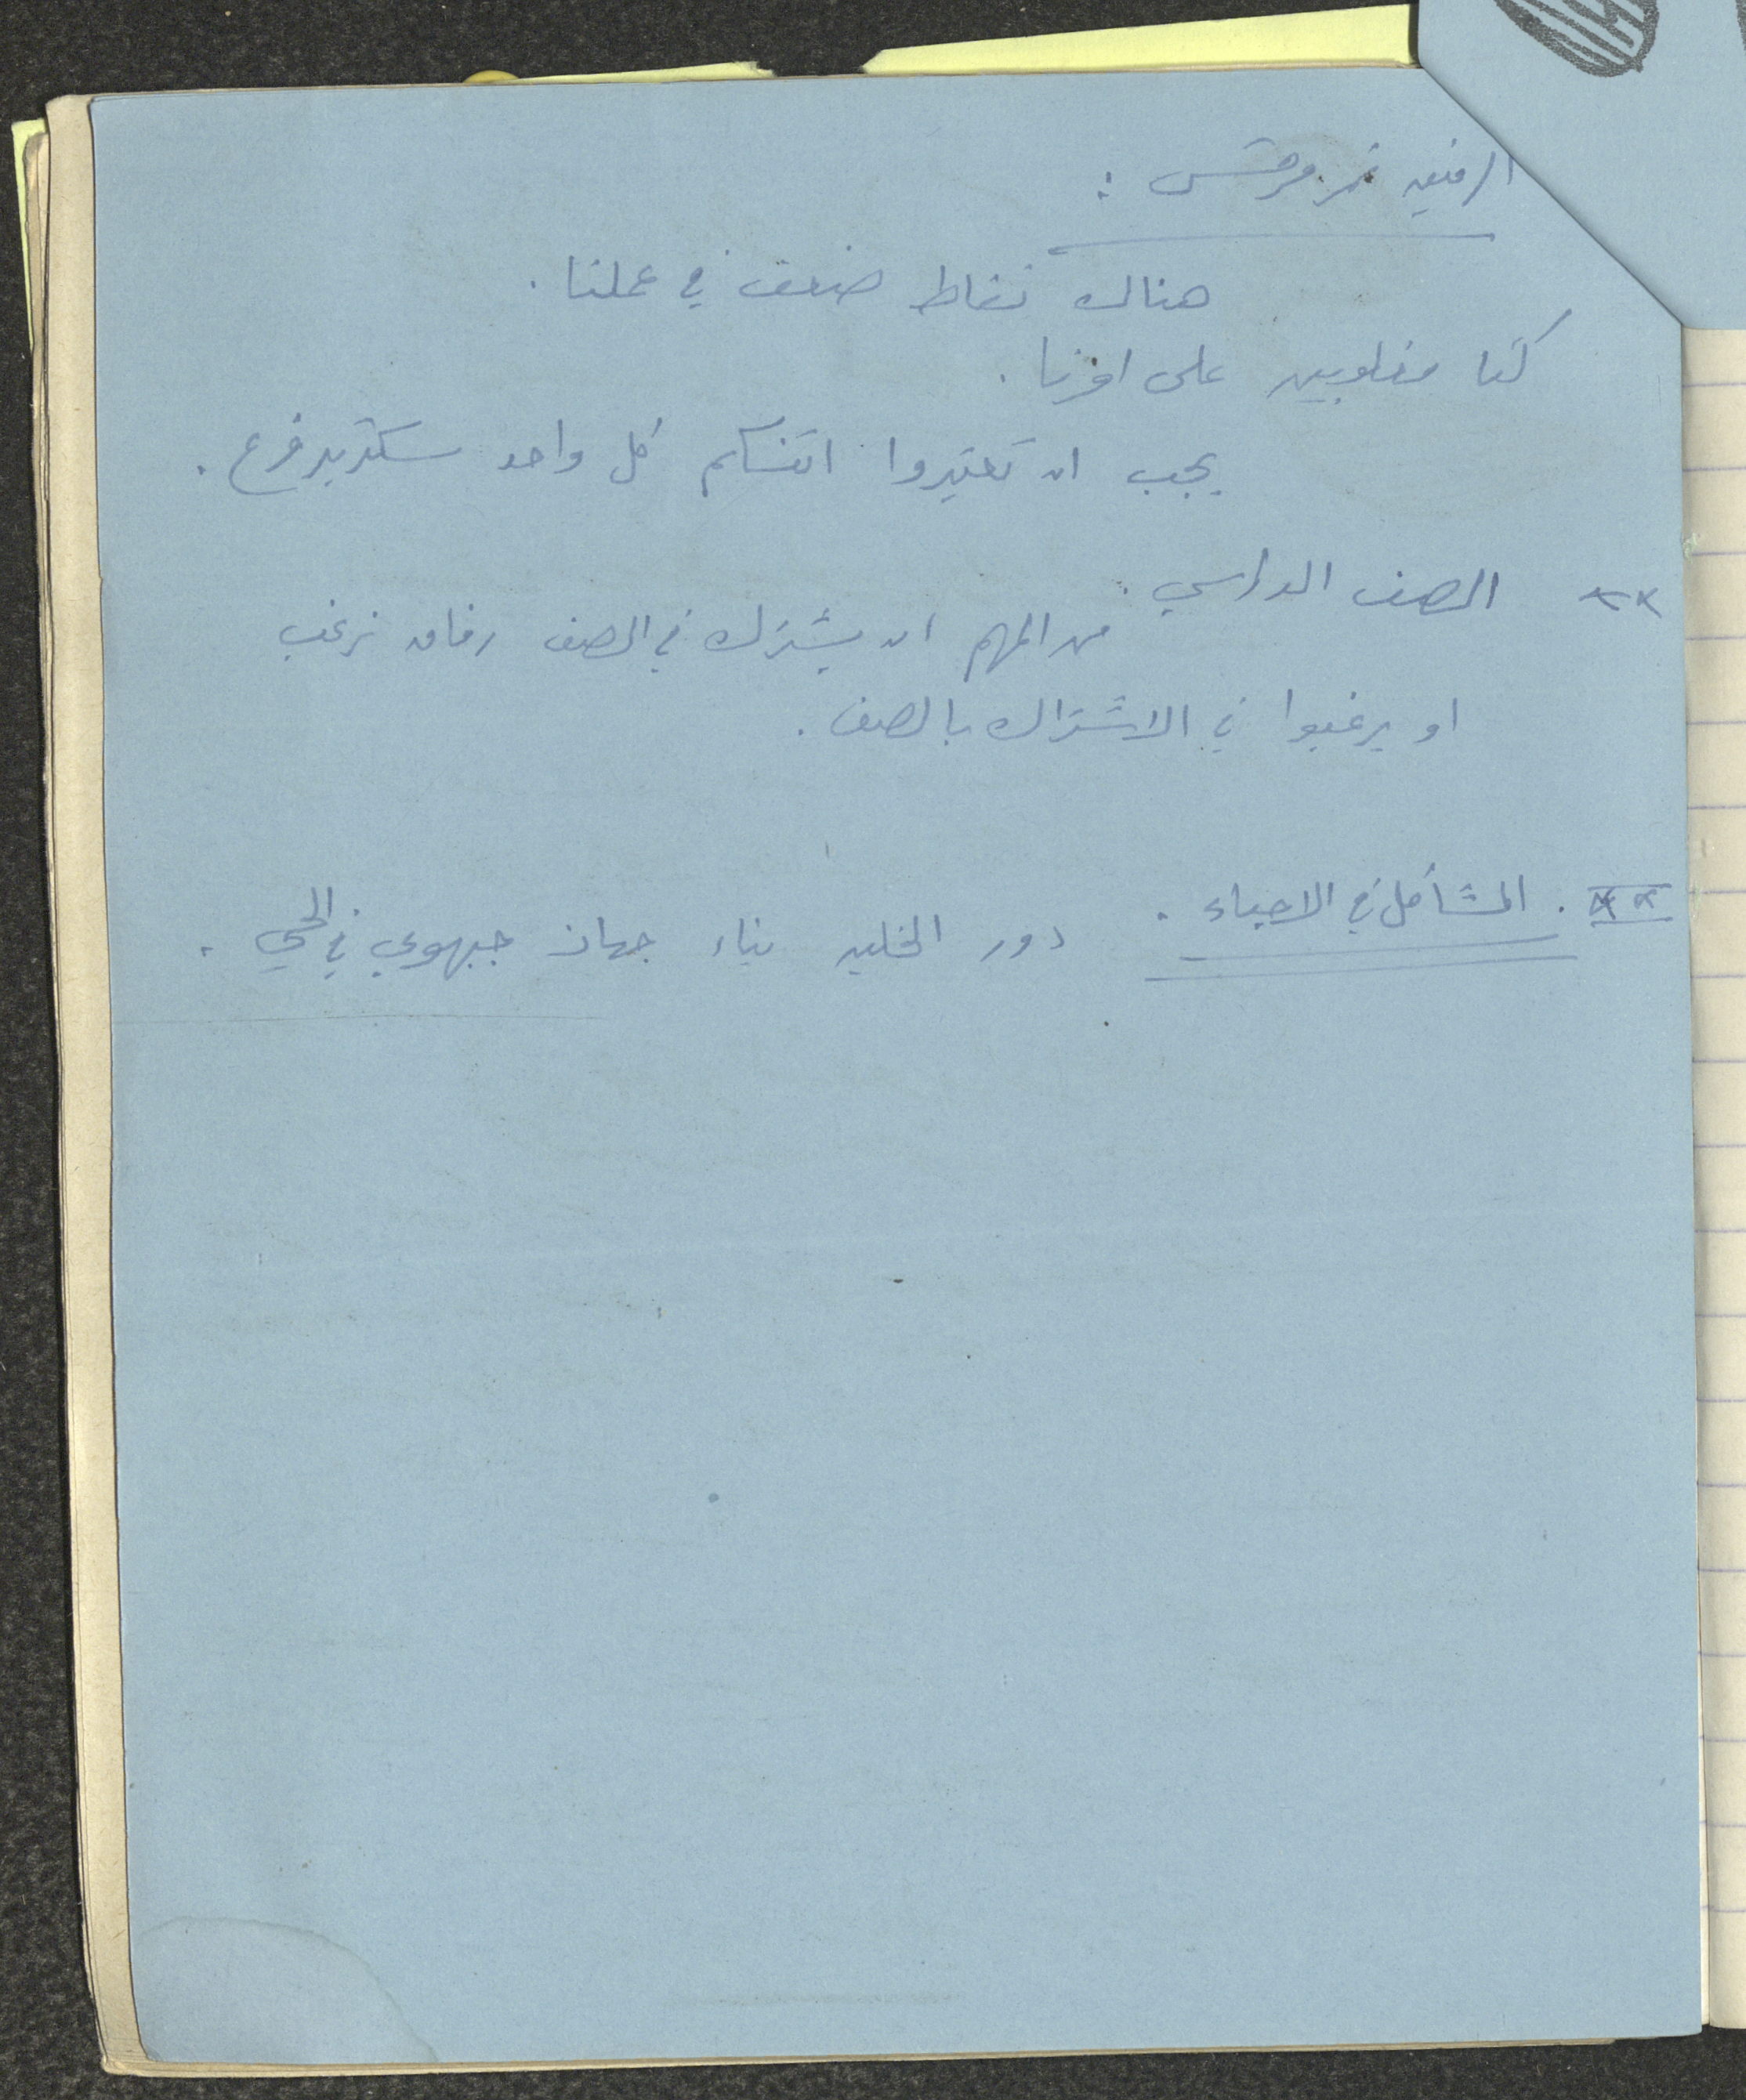 الرفيق نمر مرقس :
هناك نقاط ضعف في عملنا .
كنا مغلوبين على امرنا .
يجب ان تعتبروا انفسكم كل واحد سكرتير فرع .
×× الصف الدراسي .
من المهم ان يشترك في الصف رفاق نرغب
او يرغبوا في الاشتراك بالصف .
×× . المشاكل في الاحياء . دور الخليه بناء جهاز جبهوي في الحي .